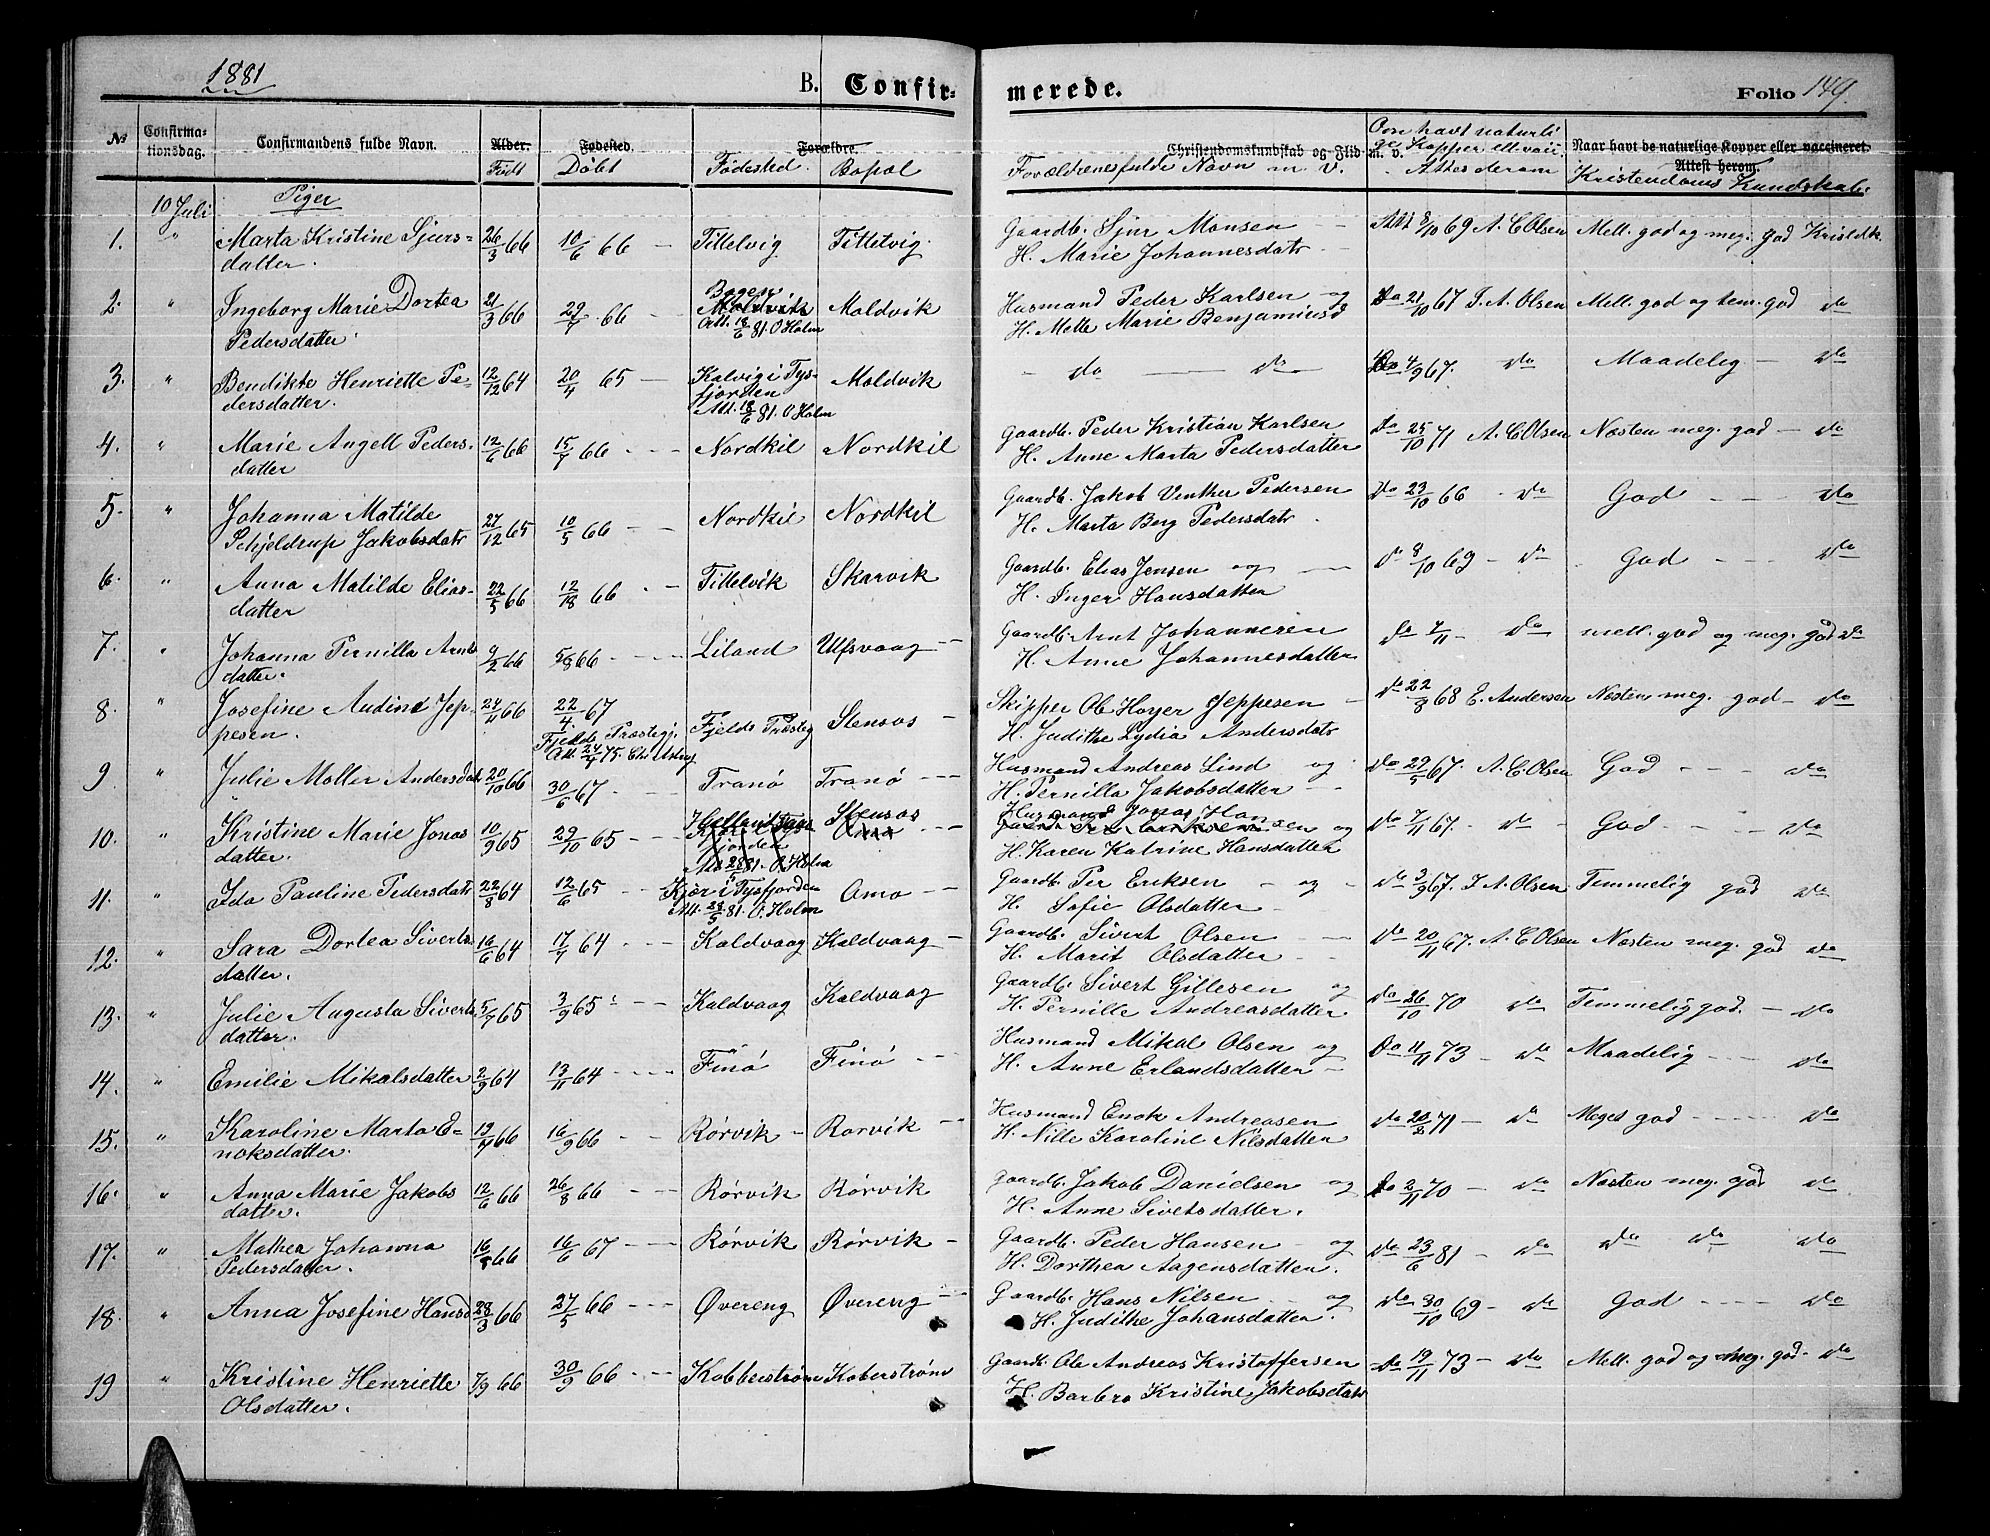 1881
B. Confir-
merede.
Folio 149.
№
Confirma-
tionsdag.
Confirmandens fulde Navn.
Alder.
Født
Fødested.
Døbt
Forældre.
Fødested.
Bopæl
Christendomskundskab og Flid m. v.
Forældrenes fulde Navn m. V.
Om havt naturli
ge Kopper ell. vacc.
Attest derom
Naar havt de naturlige Kopper eller vaccineret
Attest herom.
Kristendoms Kundskab.
10 Juli
Piger
1. " Marta Kristine Sjurs-
datter. 26/3 66 10/6 66 — Tittelvig Tittelvig. Gaardb. Sjur Monsen — Att 8/10 69 A. C Olsen Mell. god og meg. god Kristdk.
H. Marie Johannesdatr
2. " Ingeborg Marie Dortea
Pedersdatter. 21/3 66 29/7 66 — Bogen Moldvik Husmand Peder Karlsen og Do 21/10 67 J. A. Olsen Mell. god og tem. god do
Moldvik
Att. 18/6 81. O Holm
H. Mette Marie Benjaminsd
3. " Bendikte Henriette Pe-
dersdatter. 12/12 64 20/4 65 — Kalvig i Tys-
fjorden Moldvik do do Do 4/9 67. do Maadelig — do
Att. 18/6 81. O Holm
4. " Marie Angell Peders-
datter 12/6 66 15/7 66 — Nordkil Nordkil Gaardb. Peder Kristian Karlsen Do 25/10 71 A. C Olsen Næsten meg. god — do
H. Anne Marta Pedersdatter
5. " Johanna Matilde
Schjeldrup Jakobsdatr 27/12 65 10/5 66 — Nordkil Nordkil Gaardb. Jakob Venther Pedersen Do 23/10 66 do God — do
H. Marta Berg Pedersdatr.
6. " Anna Matilde Elias-
datter 22/5 66 12/18 66 — Tittelvik Skarvik Gaardb. Elias Jensen og — do 8/10 69 — do God — do
H. Inger Hansdatter
7. " Johanna Pernilla Arnts
datter. 9/2 66 5/8 66 — Liland Ulfsvaag — Gaardb. Arnt Johannesen do 7/11 — do mell. god og meg. god do
H. Anne Johannesdatter
8. " Josefine Audine Jep-
pesen. 24/11 66 22/4 67 Fjelds Præsteg Stensos — Skipper Ole Hoyer Jeppesen — do 22/8 68 E. Andersen Næsten meg. god — do
Fjelds Præstegj.
Att. 24/4 75.
H. Judithe Lydia Andersdatr
9 " Julie Moller Andersdatr 20/10 66 30/6 67. — Tranö Tranö — Husmand Andreas Lind og Do 29/5 67. A. C. Olsen God — do
H. Pernilla Jakobsdatter
10. " Kristine Marie Jonas
datter. 10/9 65 29/10 65 — Stensos Husmand Jonas Han
sen og Do 7/11 67. — do — God — do
fjorden
O Holm
H. Karen Katrine Hansdatter
11. " Ida Pauline Pedersdatr 22/8 64 12/6 65 — Kjær i Tysfjorden Amo — Gaardb. Per Eriksen — og — do 3/9 67. J. A. Olsen Temmelig god do
Att. 28/5 81. O. Holm
H. Sofie Olsdatter
12. " Sara Dortea Siverts
datter. 16/6 64 17/7 64 — Kaldvaag Kaldvaag — Gaardb. Sivert Olsen — do 20/11 67. A. C Olsen Næsten meg. god do
H. Marit Olsdatter
13. " Julie Augusta Siverts
datter. 5/7 65 3/9 65 — Kaldvaag Kaldvaag Gaardb. Sivert Gillesen og Do 26/10 70 do Temmelig god. — do
H. Pernille Andreasdatter
14. " Emilie Mikalsdatter 2/9 64 13/11 64 — Finö Finö — Husmand Mikal Olsen og Do 11/11 73 — do Maadelig — do
H. Anne Erlandsdatter
15. " Karoline Marta E-
noksdatter. 19/7 66 16/9 66 — Rörvik — Rorvik — Husmand Enok Andreasen do 20/8 71 — do Meget god — do
H. Nille Karoline Nilsdatter
16. " Anna Marie Jakobs
datter. 12/6 66 26/8 66 — Rörvik Rörvik Gaardb. Jakob Danielsen og do 2/11 70 — do Næsten meg. god do
H. Anne Sivetsdatter.
17. " Mathea Johanna
Pedersdatter. 16/8 66 16/6 67 — Rörvik Rörvik — Gaardb. Peder Hansen — og do 23/6 81 — do do do do
H. Dorthea Aagensdatter.
18. " Anna Josefine Hansd 28/3 66 27/5 66 — Övereng Övereng — Gaardb. Hans Nilsen — og do 30/10 69 — do God — do
H. Judithe Johansdatter.
19 " Kristine Henriette
Olsdatter. 7/9 66 30/9 66 — Kobberström Koberström Gaardb. Ole Andreas Kristoffersen do 19/11 73 — do Mell. god og meg. god. do
H. Barbro Kristine Jakobsdatr